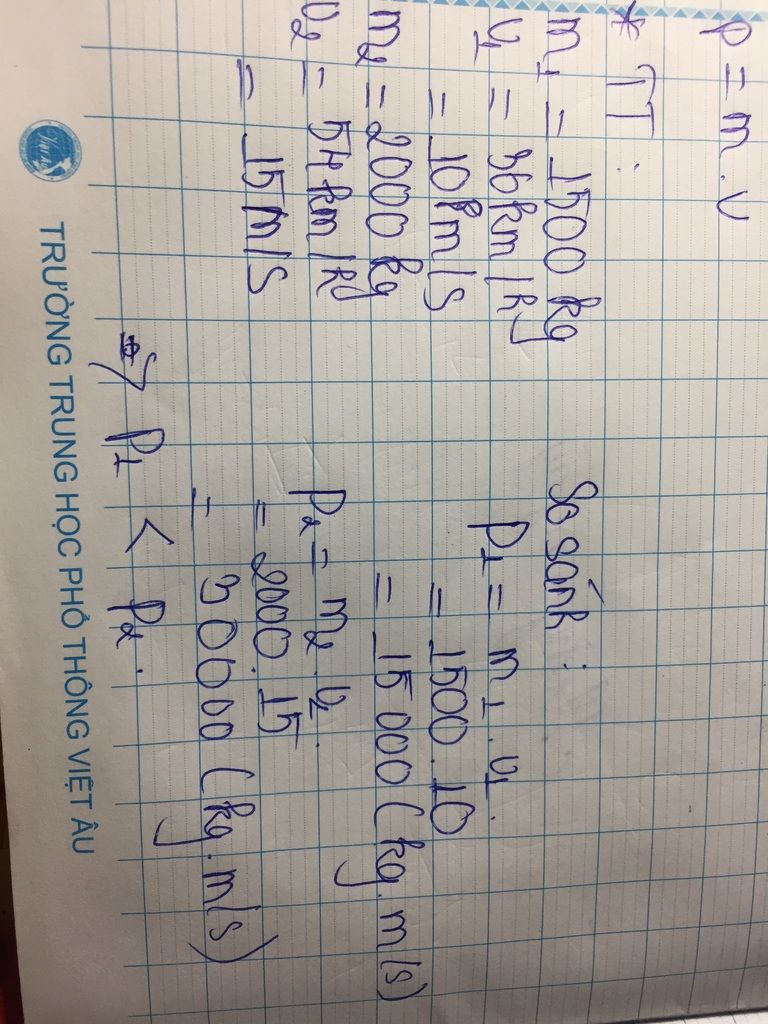 p = m . v
* TT :
m1 = 1500 kg
v1 = 36km/h
= 10km/s
m2 = 2000 kg
v2 = 54km/h
= 15 m/s
So sánh :
p1 = m1 . v1.
= 1500 . 10
= 15 000 (kg.m/s)
p2 = m2 . v2.
= 2000. 15
= 30000 (kg.m/s)
=> p1 < p2.
TRƯỜNG TRUNG HỌC PHỔ THÔNG VIỆT ÂU